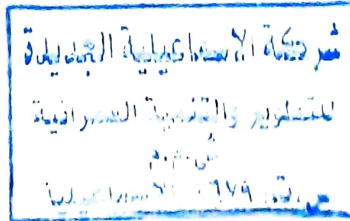 شركة الاسماعيلية الجديدة
للتطوير والتنمية العمرانية
ش.م.م
الاسماعيلية